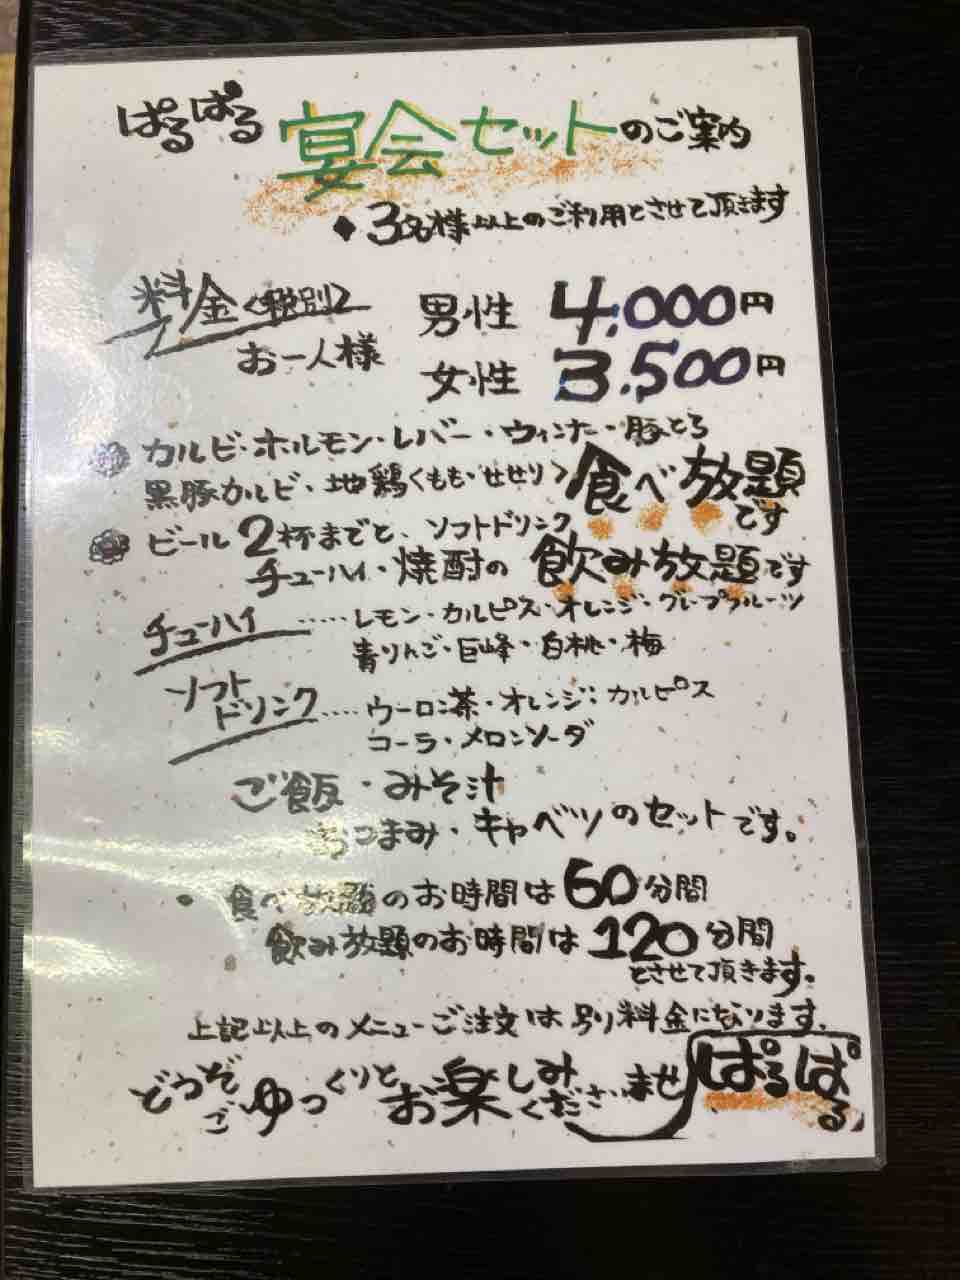 ぱるぱる 宴会セットのご案内
◆3名様以上のご利用とさせて頂きます
料金<税別> 男性 4,000円
お一人様 女性 3,500円
カルビ・ホルモン・レバー・ウィンナー・豚とろ
黒豚カルビ・地鶏<もも・せせり> 食べ放題です
ビール2杯までと、ソフトドリンク
チューハイ・焼酎の飲み放題です
チューハイ ‥‥‥レモン・カルピス・オレンジ・グレープフルーツ
青りんご・巨峰・白桃・梅
ソフト
ドリンク ‥‥‥ウーロン茶・オレンジ・カルピス
コーラ・メロンソーダ
ご飯・みそ汁
おつまみ・キャベツのセットです。
・食べ放題のお時間は60分間
飲み放題のお時間は120分間
とさせて頂きます。
上記以上のメニューご注文は別料金になります。
どうぞごゆっくりとお楽しみくださいませ ぱるぱる